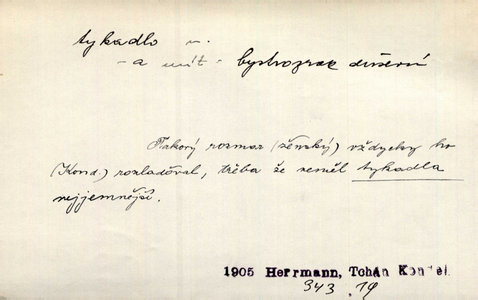 tykadlo n.
-a mít - bystrozrak duševní
Takový rozmar (ženský) vždycky ho
(Kond.) rozladoval, třeba že neměl tykadla
nejjemnější.
1905 Herrmann, Tchán Kondel.
343.19